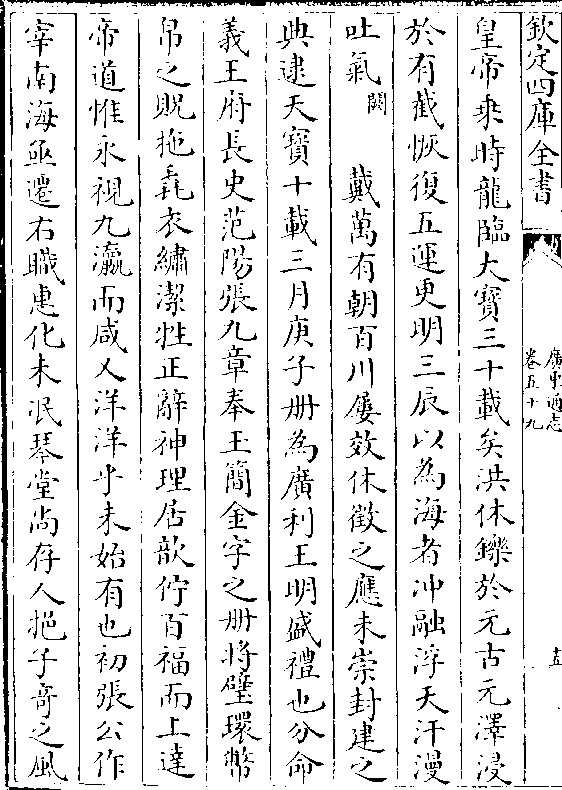 欽定四庫全書
廣東通志
卷五十九
五
皇帝乗時龍臨大寶三十載矣洪休鑠於元古元澤浸
於有截恢復五運更明三辰以為海者冲融浮天汗漫
吐氣闕戴萬有朝百川屢效休徵之應未崇封建之
典逮天寶十載三月庚子册為廣利王明盛禮也分命
義王府長史范陽張九章奉玉簡金字之册將璧環幣
帛之貺拖毳衣繡潔牲正辭神理居歆佇百福而上達
帝道惟永視九瀛而咸乂洋洋乎未始有也初張公作
宰南海亟遷右職惠化未泯琴堂尚存人挹子奇之風